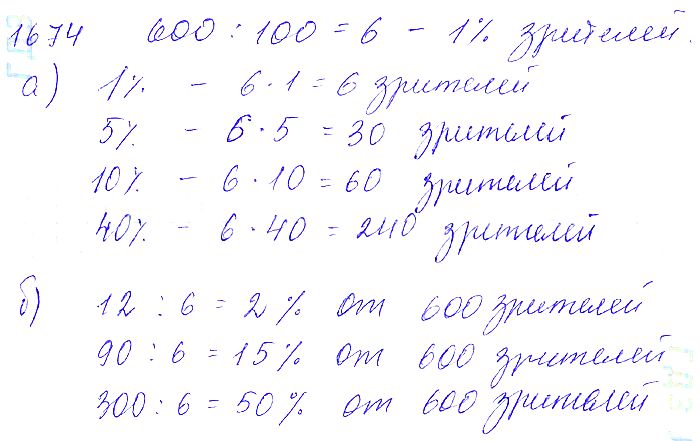 1674 600 : 100 = 6 - 1% зрителей.
а) 1% - 6 · 1 = 6 зрителей
5% - 6 · 5 = 30 зрителей
10% - 6 · 10 = 60 зрителей
40% - 6 · 40 = 240 зрителей
б) 12 : 6 = 2% от 600 зрителей
90 : 6 = 15% от 600 зрителей
300 : 6 = 50% от 600 зрителей